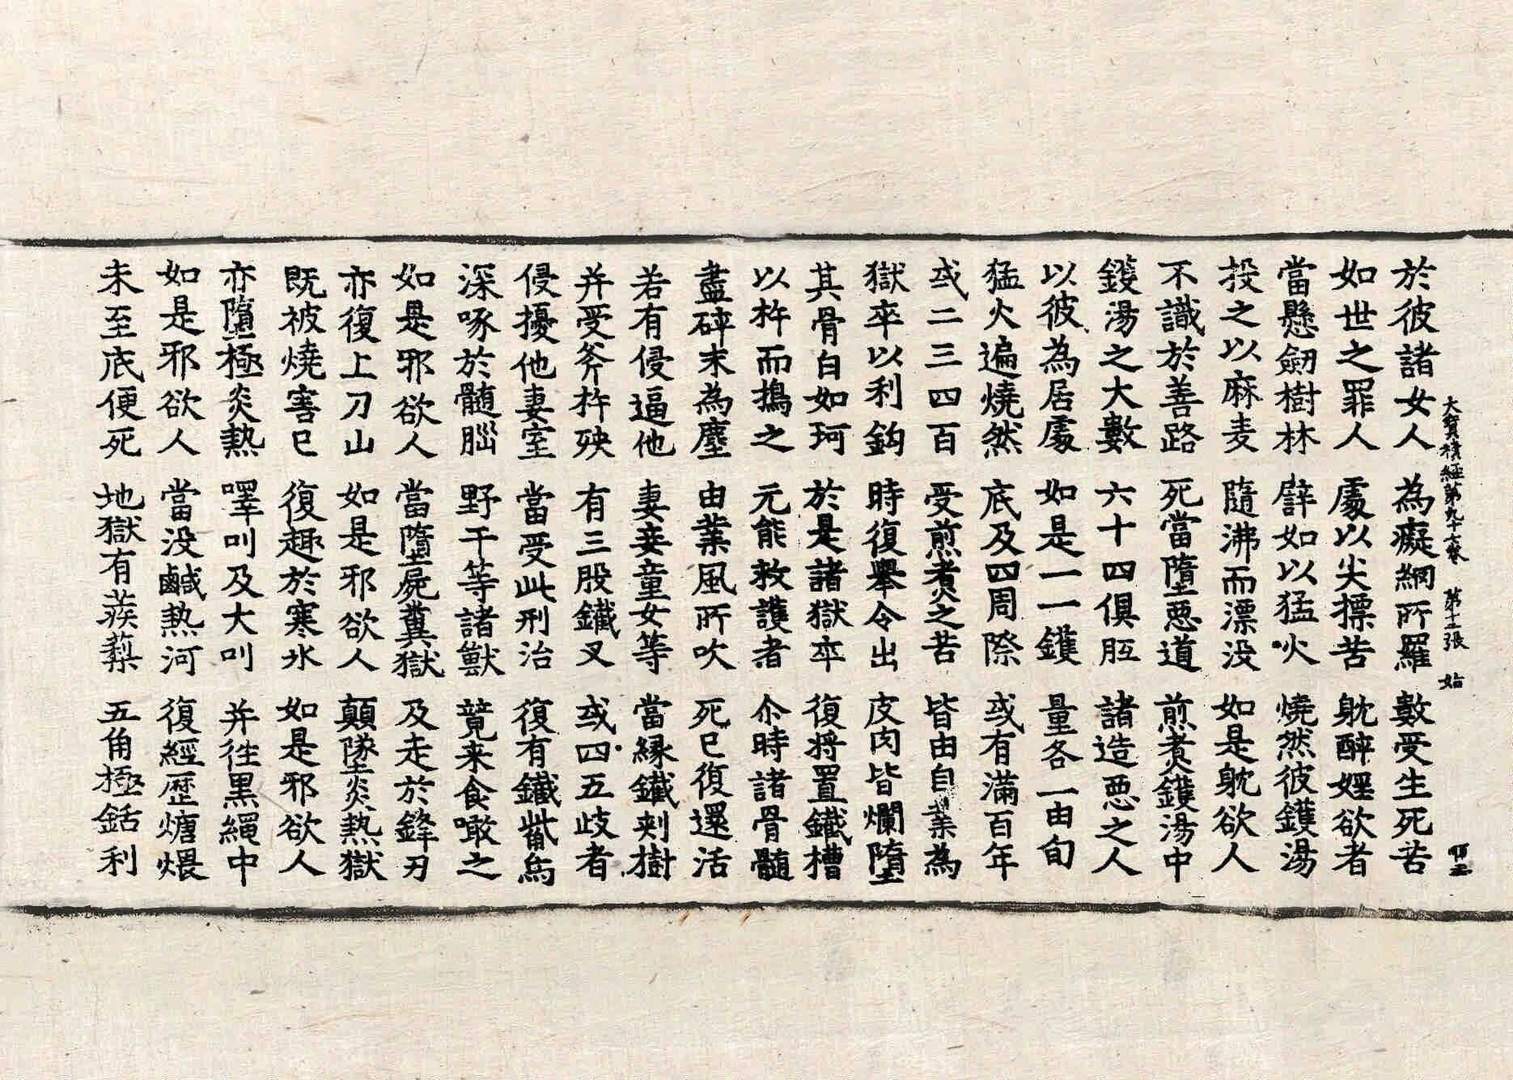 大寶積經第九十六卷 第十二張 始
於彼諸女人 為癡網所羅 數受生死苦
如世之罪人 處以尖摽苦 躭醉婬欲者
當懸劒樹林 譬如以猛火 燒然彼鑊湯
投之以麻麦 隨沸而漂没 如是躭欲人
不識於善路 死當墮惡道 煎煑鑊湯中
鑊湯之大數 六十四俱胝 諸造惡之人
以彼為居處 如是一一鑊 量各一由旬
猛火遍燒然 底及四周際 或有滿百年
或二三四百 受煎煑之苦 皆由自業為
獄卒以利鈎 時復舉令出 皮肉皆爛墮
其骨白如珂 於是諸獄卒 復將置鐵槽
以杵而搗之 元能救護者 尒時諸骨髓
盡碎末為塵 由業風所吹 死已復還活
若有侵逼他 妻妾童女等 當緣鐵刺樹
并受斧杵殃 有三股鐵叉 或四五歧者
侵擾他妻室 當受此刑治 復有鐵觜烏
深啄於髓腦 野干等諸獸 競来食噉之
如是邪欲人 當墮屍糞獄 及走於鋒刃
亦復上刀山 如是邪欲人 顛墜炎熱獄
既被燒害已 復趣於寒氷 如是邪欲人
亦墮極炎熱 嘷叫及大叫 并往黑繩中
如是邪欲人 當没鹹熱河 復經歷煻煨
未至底便死 地獄有蒺蔾 五角極銛利